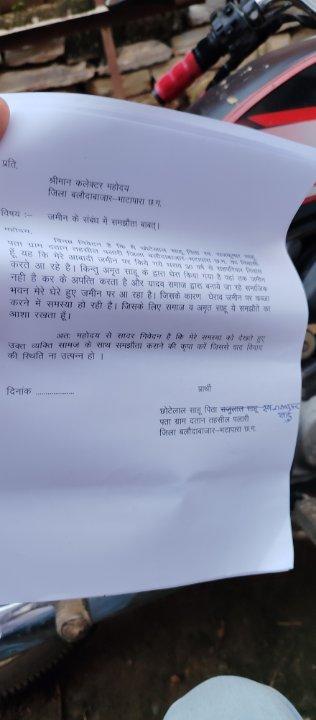 प्रति,
श्रीमान कलेक्टर महोदय
जिला बलौदाबाजार-भाटापारा छ.ग.
विषय :- जमीन के संबंध में समझौता बाबत्।
महोदय,
विनम्र निवेदन है कि मैं छोटेलाल साहू पिता स्व.
पता ग्राम दतान तहसील पलारी जिला बलौदाबाजार-भाटापारा छ.ग. का निवासी
हूँ यह कि मेरे आबादी जमीन पर किये गये घेराव 30 वर्ष से
करते आ रहे है। किन्तु अमृत साहू के द्वारा घेरा किया गया है वहां तक जमीन
नही है कर के अपत्ति करता है और यादव समाज द्वारा बनाये जा रहे समाजिक
भवन मेरे घेरे हुए जमीन पर आ रहा है। जिसके कारण घेराव जमीन पर कब्जा
करने में समस्या हो रही है। जिसके लिए समाज व अमृत साहू से समझौते का
आशा रखता हूँ।
अतः महोदय से सादर निवेदन है कि मेरे समस्या को देखते हुए
उक्त व्यक्ति सामज के साथ समझौता कराने की कृपा करें जिससे वाद विवाद
की स्थिति ना उत्पन्न हो ।
दिनांक ..................
प्रार्थी
छोटेलाल साहू पिता साहू स्व. साहू
पता ग्राम दतान तहसील पलारी
जिला बलौदाबाजार-भाटापारा छ.ग.